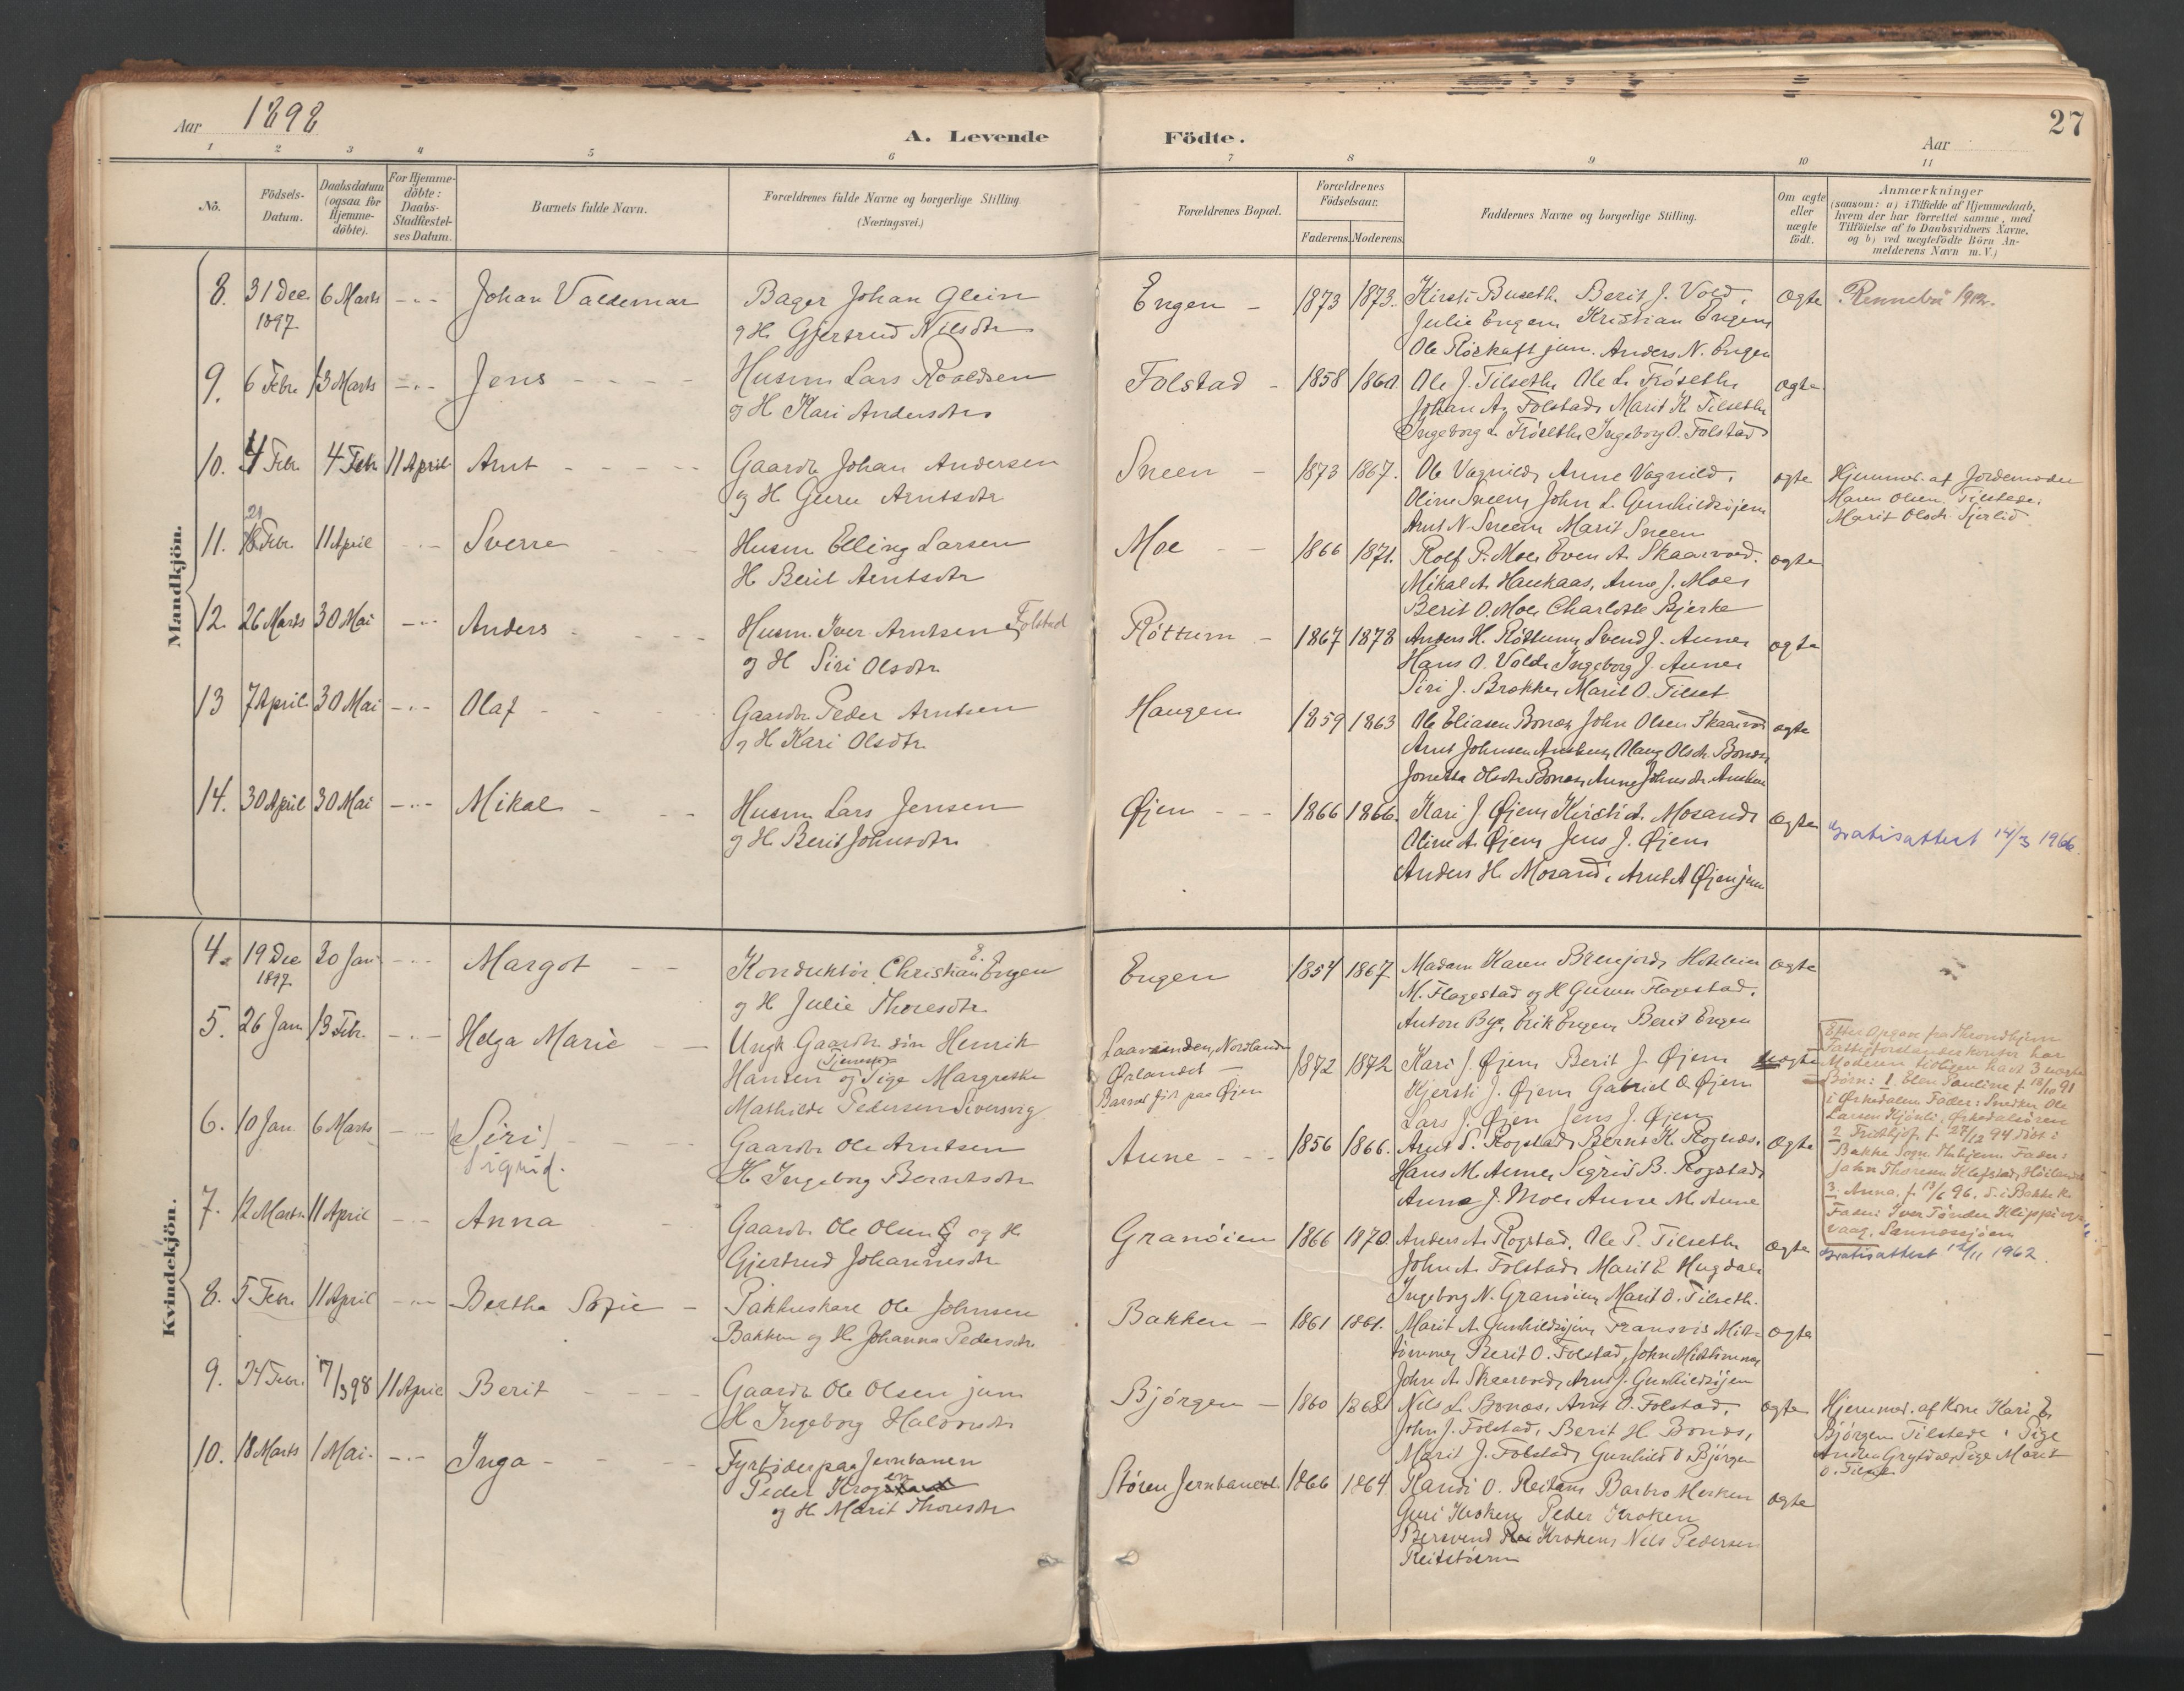 27
Aar 1898
A. Levende Födte.
Aar
1 2 3 4 5 6 7 8 9 10 11
No.
Födsels-Datum.
Daabsdatum (ogsaa for Hjemme-döbte).
For Hjemme-döbte: Daabs-Stadfæstel-ses Datum.
Barnets fulde Navn.
Forældrenes fulde Navne og borgerlige Stilling
(Næringsvei.)
Forældrenes Bopæl.
Forældrenes Födselsaar.
Faderens. Moderens.
Faddernes Navne og borgerlige Stilling.
Om ægte eller uægte födt.
Anmærkninger
(saasom: a) i Tilfælde af Hjemmedaab,
hvem der har forrettet samme, med
Tilföielse af to Daabsvidners Navne,
og b) ved uægtefödte Börn An-
melderens Navn m. V.)
Mandkjön.
8. 31 Dec. 1897 6 Marts -.- Johan Valdemar
Bager Johan Glein
og H. Gjertrud Nilsdtr
Engen - 1873 1873.
Kirsti Buseth. Berit J. Vold,
Julie Engen, Kristian Engen,
Ole Röskaft jun. Anders N. Engen
ægte
Rennebu 1912.
9. 6 Febr. 13 Marts -.- Jens
Husm Lars Roaldsen
og H Kari Andersdtr
Folstad - 1858 1860.
Ole J. Tilseth, Ole L. Fröseth,
Johan A. Folstad, Marit K. Tilseth,
Ingeborg L. Fröseth, Ingeborg O. Folstad
ægte
10. 4 Febr. 4 Febr 11 April Arnt
Gaardbr Johan Andersen
og H. Guru Arntsdtr
Sneen - 1873 1867.
Ole Vagnild, Anne Vagnild,
Oline Sneen, John L. Gunhildsöjen,
Arnt N. Sneen, Marit Sneen
ægte
Hjemmed. af Jordemoder
Maren Olsen. Tilstede:
Marit Olsdr.
11. 21 Febr. 11 April -.- Sverre
Husm Elling Larsen
H Berit Arntsdtr
Moe - 1866 1871.
Rolf P. Moe, Even A. Skaarvold.
Mikal A. Haukaas, Anne J. Moe,
Berit O. Moe, Charlotte Bjerke
ægte
12. 26 Marts 30 Mai -.- Anders
Husm. Iver Arntsen Folstad
og H Siri Olsdtr
Röttum - 1867 1878
Anders H. Röttum, Svend J. Aune,
Hans O. Vold, Ingeborg J. Aune,
Siri J. Brekke, Marit O. Tilset
ægte
13 7 April 30 Mai -.- Olaf
Gaardbr Peder Arntsen
og H Kari Olsdtr
Haugen 1859 1863
Ole Eliasen Bonæs, John Olsen Skaarvold
Arnt Johnsen, Olaug Olsdr. Bonæs,
Olsdtr Bonæs, Anne Johnsdr.
ægte
14. 30 April 30 Mai -.- Mikal
Husm Lars Jensen
og H Berit Johnsdtr
Øjen - 1866 1866.
Kari J. Øjen, Kirsti A. Mosand,
Oline A. Øjen, Jens J. Øjen,
Anders H. Mosand, Arnt A Øjen jun
ægte
Gratisattest 14/3 1966.
Kvindekjön.
4. 19 Dec 1897. 30 Jan -.- Margot
Konduktör Christian E. Engen
og H Julie Thoresdtr
Engen 1854 1867
Madam Karen, Hoteleier
M. Flagestad og H Flagestad,
Anton Bye, Erik Engen, Berit Engen
ægte
5. 26 Jan. 13 Febr. -.- Helga Marie
Ungk Gaardbr sön Henrik
Hansen og Tjenestep Pige Margrethe
Mathilde Pedersen Siversvig
Nordland
Ørlandet -
Barnet föt paa Øjen
1872 1872
Kari J. Øjen, Berit J. Øjen
Kjersti J. Øjen, Gabriel O. Øjen
Lars J. Øjen, Jens J. Øjen
uægte
Efter Opgave fra Throndhjem
Fattigforstanderkontor har
Moderen tidligere havt 3 uægte
Börn: 1. Elen Pauline f. 18/10 91
i Örkedalen Fader: Snedker Ole
Larsen, Örkedalsören
2 Fritjhof f. 27/12 94 födt i
Bakke Sogn Thhjem Fader:
John Thoresen
3. Anna, f. 13/6 96. i Bakke
Fader: Iver Tönder
6. 10 Jan. 6 Marts -.- (Siri) Sigrid.
Gaardbr Ole Arntsen
H Ingeborg Berntsdtr
Aune - 1856 1866.
Arnt S. Rogstad, Bernt K. Rognæs,
Hans M. Aune, Sigrid B. Rogstad,
Anne J. Moe, Anne M. Aune
ægte
7. 12 Marts 11 April -.- Anna
Gaardbr Ole Olsen G og H
Gjertrud Johannesdtr
Granöien 1866 1870.
Anders A. Rogstad, Ole P. Tilseth,
John A. Folstad, Marit E Hugdal,
Ingeborg N. Granöien, Marit O. Tilseth.
ægte
Gratisattest 12/11 1962.
8. 5 Febr. 11 April -.- Bertha Sofie -
Pakhuskarl Ole Johnsen
Bakken og H. Johanna Pedersdtr
Bakken - 1861 1861.
Marit A. Gunhildsöjen,
Berit O. Folstad, John
John A. Skaarvold, Arnt J. Gunhildsöjen
ægte
9. 24 Febr. 7/3 98 11 April Berit
Gaardbr Ole Olsen jun
H Ingeborg Halvorsdtr
Bjørgen - 1860 1868
Nils L. Bonæs, Arnt O. Folstad,
John J. Folstad, Berit H. Bonæs,
Marit J. Folstad, Gunhild O. Björgen
ægte
Hjemmed. af Kone Kari E.
Bjørgen Tilstede: Pige
Pige Marit
10. 18 Marts 1 Mai -.- Inga
Fyrböder paa Jernbanen
Peder Krogen
og H. Marit Thoresdtr
Støren 1866 1864.
Randi O. Reitan, Barbro
Guri Kroken, Peder Kroken
Bersvend Kroken, Nils Pedersen
ægte